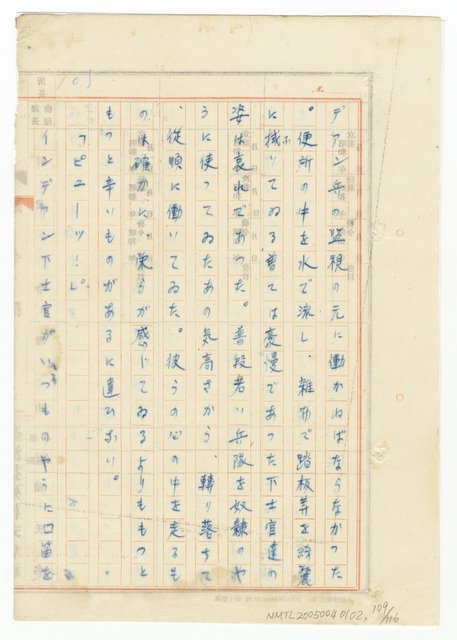 デアン兵の監視の元に働かねばならなかった
。便所の中を水で流し、雑布で踏板等を綺麗
に拭いてゐる曽ては豪慢であった下士官達の
姿は哀れであった。普段若い兵隊を奴隷のや
うに使ってゐたあの気高さから、轉り落ちて
、従順に働いてゐた。彼らの心の中を走るも
のは確かに栗らが感じてゐるよりももっと
もっと辛いものがあるに違ひない。
「ピューッ！」
インデアン下士官がいつものやうに口笛を
105
No.
NMTL20050040102, 109/116